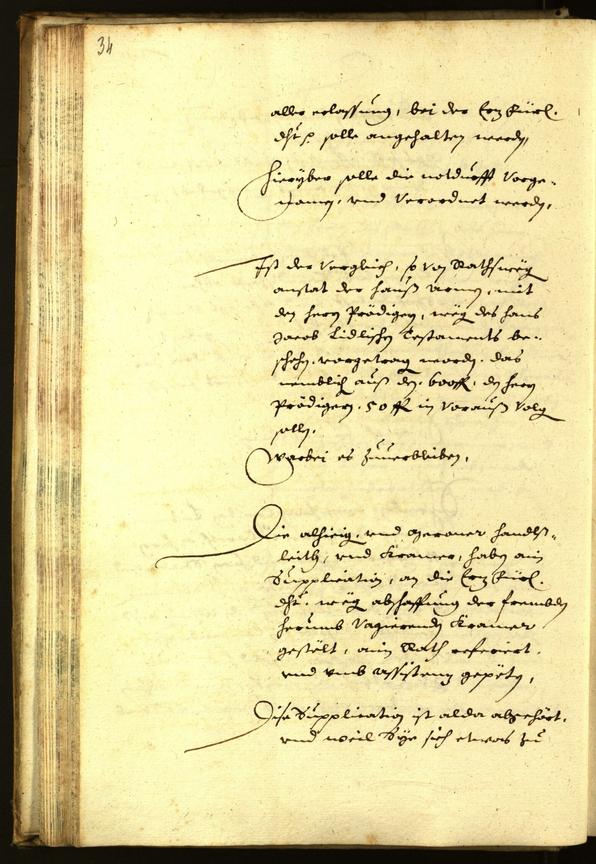 34
aller erlassung, bei der Erz Fürl.
dht p solle angehalten werdn
Hieryber solle die notdurfft vorge-
nomen, vnd verordnet werdn,
Ist der Vergleich, so von Rathsweg
anstat der hauß armen, mit
den hern Prödigern, weg des Hans
Jacob Lidlischn Testaments be-
schehn, vorgetragn wordn, das
nemblich auß dn 600 fl. dn hern
Prödigern 50 fl. in Vorauß volgn
solln.
Warbei es zuuerbleiben,
Die alhieig, vnd Meraner handls-
leith, vnd Kramer, habn ain
Supplication, an die Erz Fürl.
dht. weg abschaffung der frembdn
herumb Vagierendn Kramer
gestelt, aim Rath referiert,
vnd vmb assistenz gepetn,
Dise Supplication ist alda abgehört,
vnd weil Sye sich etwas zu